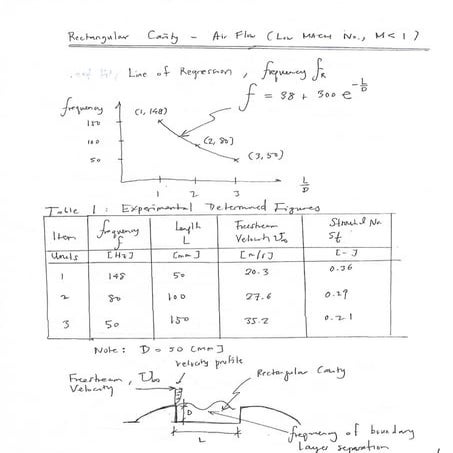 Rectangular Cavity - Air Flow (Low MACH No., M < 1)
Line of Regression, frequency fR
f = 38 + 300 e^-L/D
frequency
150
100
50
(1, 148)
(2, 80)
(3, 50)
1 2 3
L/D
Table 1: Experimental Determined Figures
Item frequency f Length L Freestream Velocity U∞ Strouhal No. Sf
Units [Hz] [mm] [m/s] [-]
1 148 50 20.3 0.36
2 80 100 27.6 0.29
3 50 150 35.2 0.21
Note: D = 50 [mm]
velocity profile
Freestream, U∞
Velocity
Rectangular Cavity
D
L
frequency of boundary
Layer separation